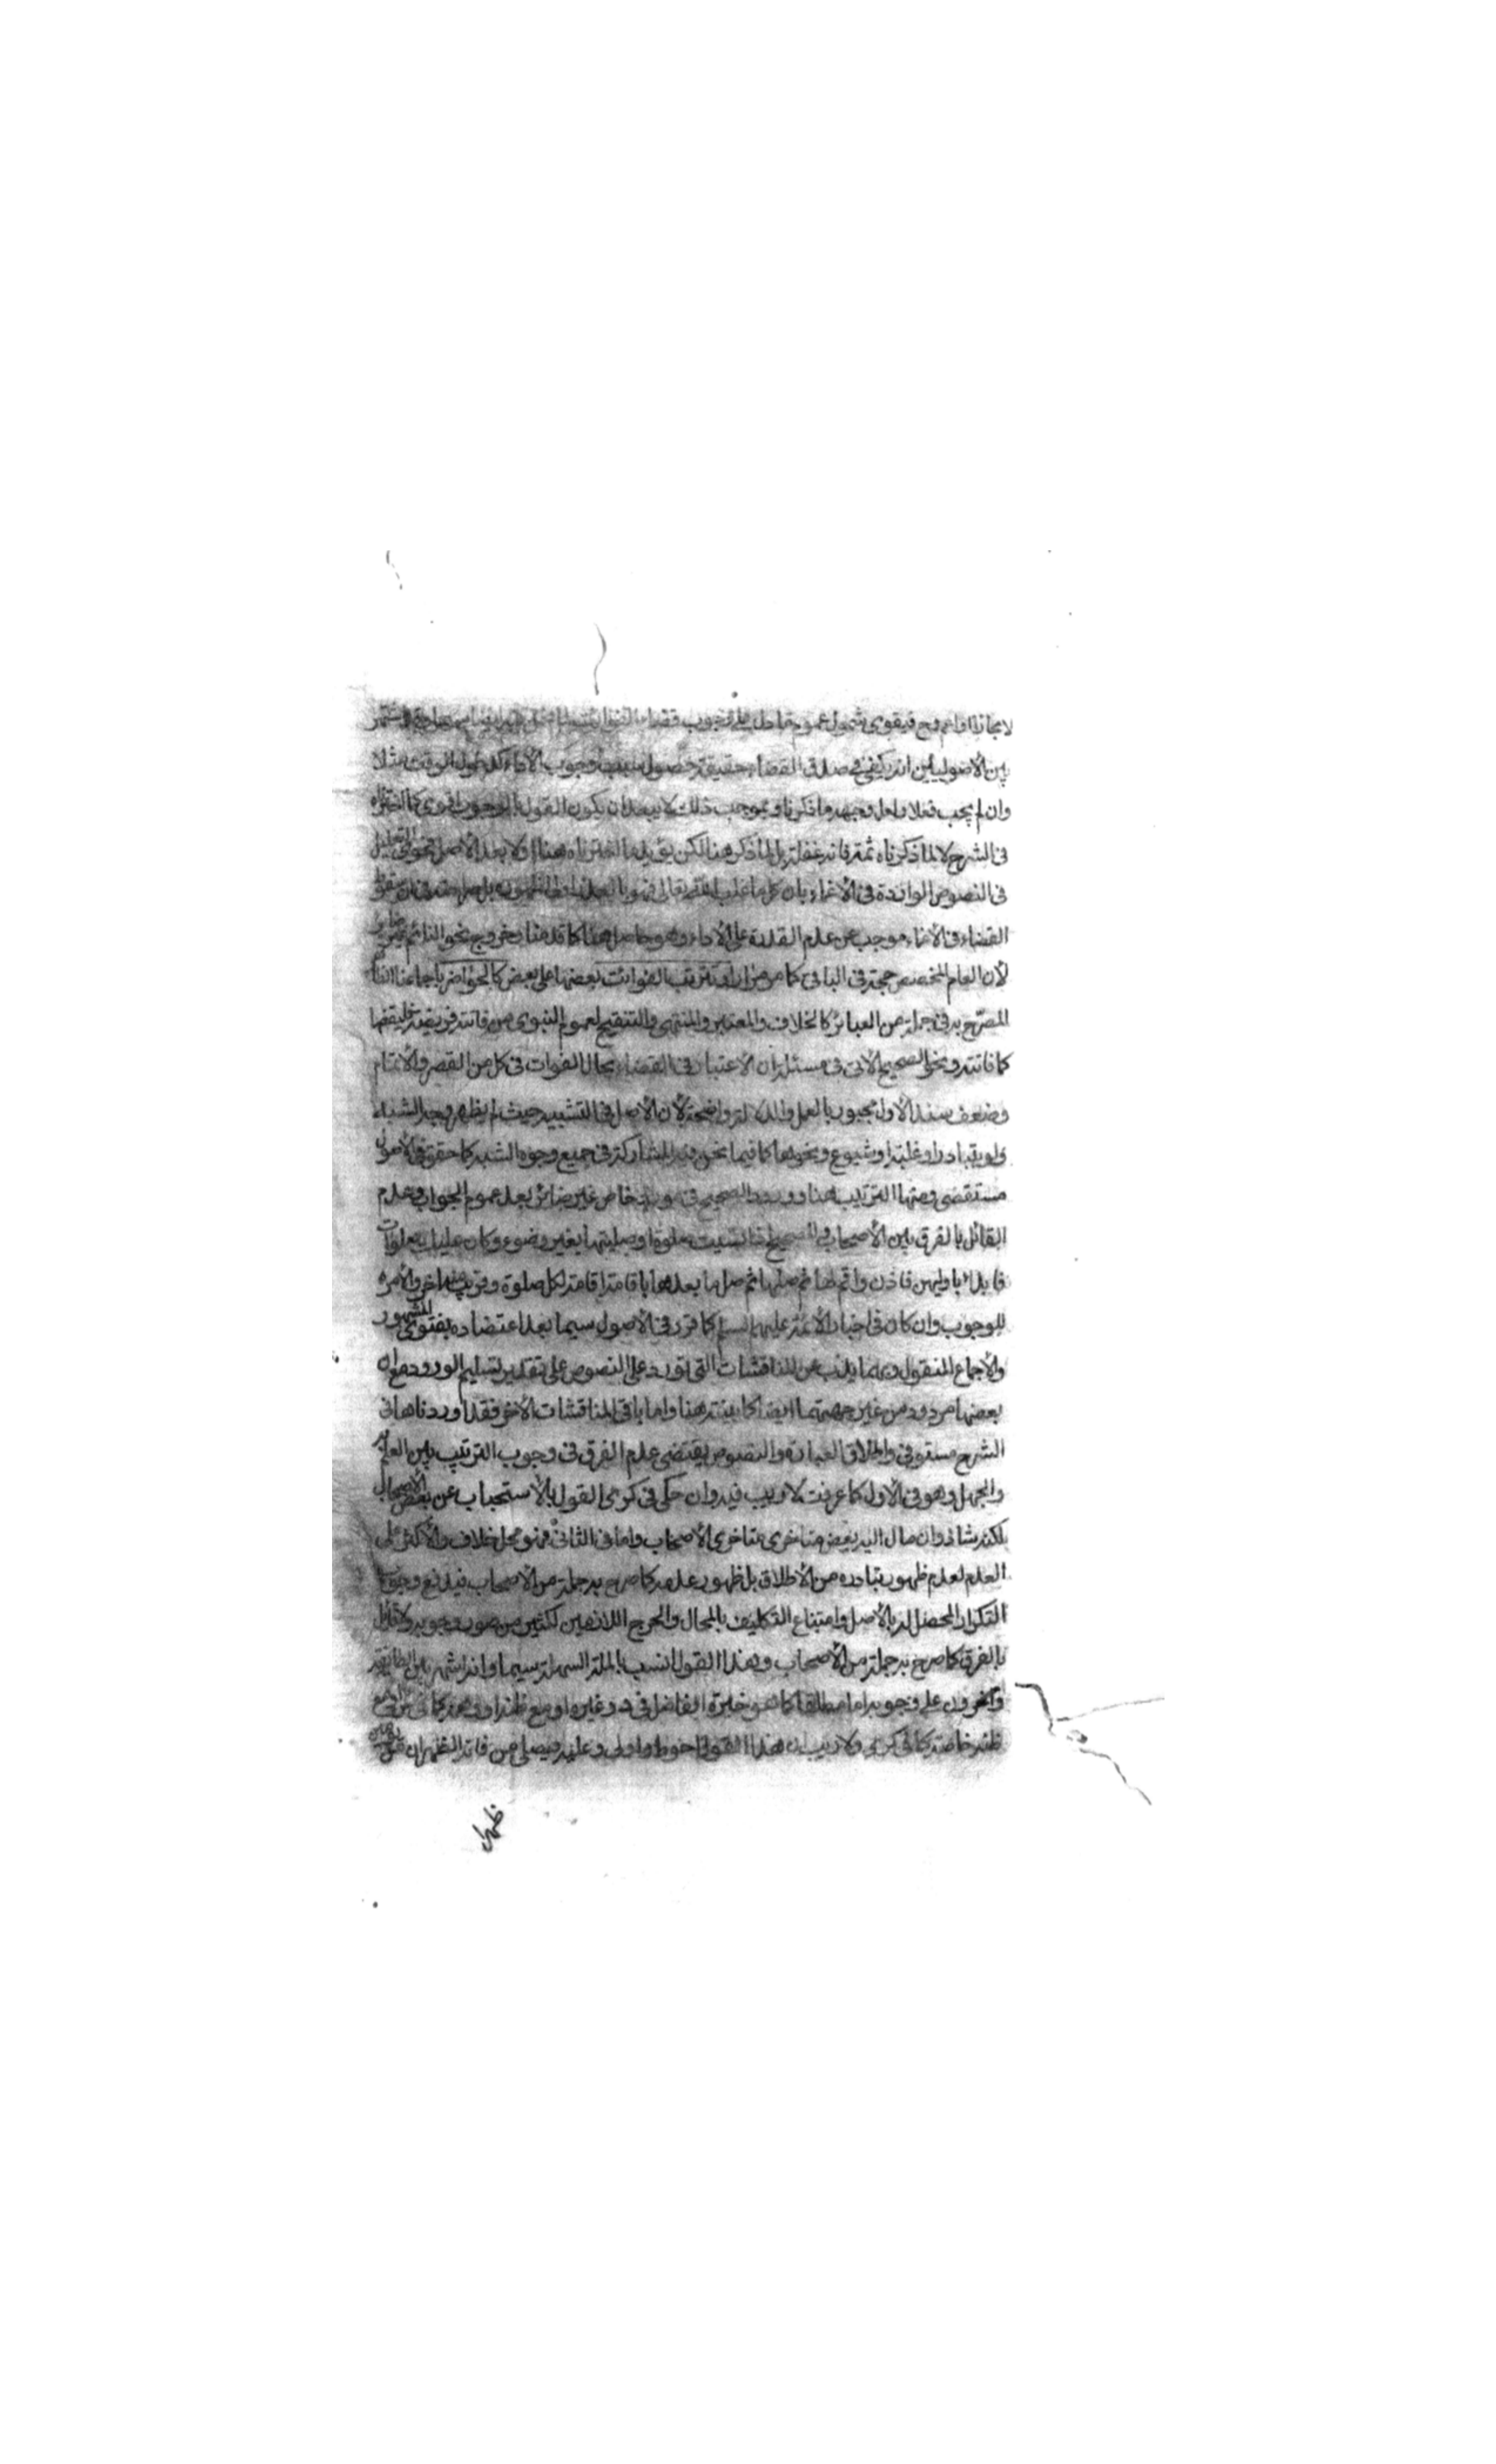 لا مجازا او اعم وح فيقوى شمول عموم ما دل على وجوب قضاء الفوائت
بين الأصوليين انه يكفى فى صدق القضاء حقيقة حصول سبب وجوب الأداء كدخول الوقت مثلا
وان لم يجب فعلا ولعل وجهه ما ذكرنا وبموجب ذلك لا يبعد ان يكون القول بالوجوب اقوى كما اخترناه
فى الشرح لا لما ذكرناه ثمة فانه غفلة بل لما ذكر هنا لكن يؤيد ما اخترناه هنا اولا بعد الأصل نحو التعليل
فى النصوص الواردة فى الأغماء بان كل ما غلب الله تعالى فهو بالعذر
القضاء فى الأغماء موجب عن عدم القدرة على الأداء وهو حاصل هنا كما قدمنا وخروج نحو النائم غير ضاير
لأن العام المخصص حجة فى الباقى كما مر مرارا وتترتب الفوائت بعضها على بعض كالحواضر باجماعنا
المصرّح به فى جملة من العبائر كالخلاف والمعتبر والمنتهى والتنقيح لعموم النبوى من فاتته فريضة فليقضها
كما فاتته ونحو الصحيح الأتى فى مسئلة ان الأعتبار فى القضاء بحال الفوات فى كل من القصر والأتمام
وضعف سند الأول مجبور بالعمل والدلالة واضحة لأن الأصل فى التشبيه حيث لم يظهر وجه الشبه
ولو بتبادر او غلبة او شيوع ونحوها كما فيما نحن فيه المشاركة فى جميع وجوه الشبه كما حقق فى الأصول
مستقصى ومنها الترتيب هنا وورود الصحيح فى مورد خاص غير ضائر بعد عموم الجواب وعدم
القائل بالفرق بين الأصحاب وللصحيح اذا نسيت صلوة او صليتها بغير وضوء وكان عليك صلوات
فابدأ باوليهن فاذن واقم لها ثم صلها ثم صل ما بعدها باقامة اقامة لكل صلوة وقريب منه اخر والأمر
للوجوب وان كان فى اخبار الأئمة عليهم السلم كما قرر فى الأصول سيما بعد اعتضاده بفتوى المشهور
والأجماع المنقول وبهما يذب عن المناقشات التى تورد على النصوص على تقدير تسليم الورود مع ان
بعضها مردود من غير جهتهما ايضا كما بينته هنا واما باقى المناقشات الأخر فقد اوردناها فى
الشرح مستوفى واطلاق العبارة والنصوص يقتضى عدم الفرق فى وجوب الترتيب بين العلم به
والجهل وهو فى الأول كما عرفت لا ريب فيه وان حكى فى كرى القول بالأستحباب عن بعض الأصحاب
لكنه شاذ وان مال اليه بعض متاخرى متاخرى الأصحاب واما فى الثانى فهو محل خلاف والأكثر على
العدم لعدم ظهور تبادره من الأطلاق بل ظهور عدمه كما صرح به جملة من الأصحاب فيدفع وجوب
التكرار المحصل له بالأصل وامتناع التكليف بالمحال والحرج اللازمين لكثير من صور وجوبه ولا قائل
بالفرق كما صرح به جملة من الأصحاب وهذا القول انسب بالملة السهلة سيما وانه اشهر بين الطايفة
وآخرون على وجوبه اما مطلقا كما هو خيرة الفاضل فى د وغيره او مع ظنه او وهمه كما فى
ظنه خاصة كما فى كرى ولا ريب ان هذا القول احوط واولى وعليه فيصلى من فاته الظهران من
ظهرا